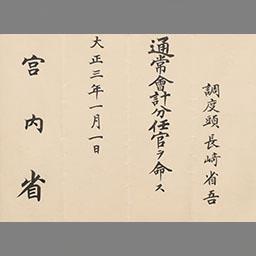 調度頭長崎省吾
通常會計分任官ヲ命ス
大正三年一月一日
宮内省